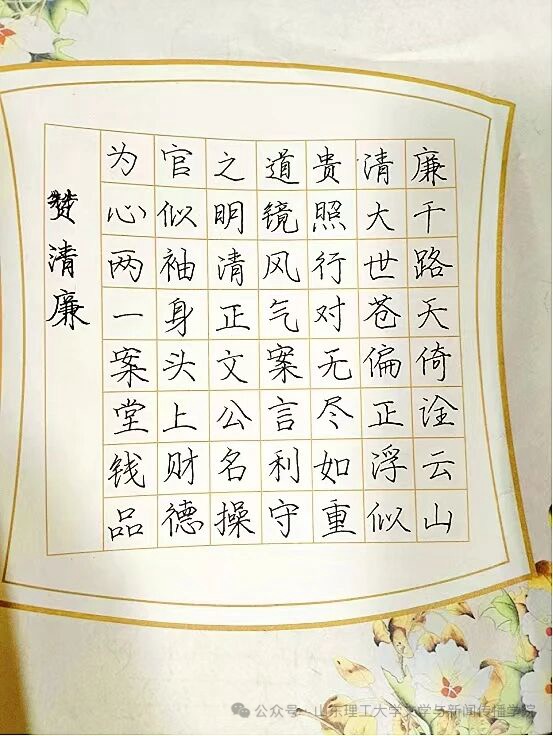 赞清廉
为官之道贵清廉
心似明镜照大千
两袖清风行世路
一身正气对苍天
案头文案无偏倚
堂上公言尽正诠
钱财名利如浮云
品德操守重似山
公众号·山东理工大学文学与新闻传播学院